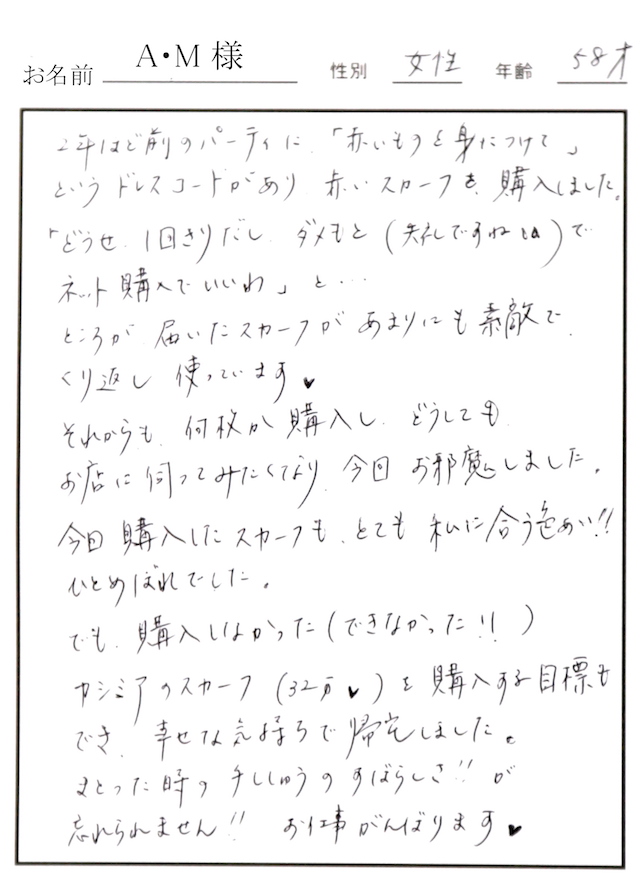 お名前 A・M 様 性別 女性 年齢 58才
2年ほど前のパーティに、「赤いものを身につけて」
というドレスコードがあり、赤いスカーフを購入しました。
「どうせ、1回きりだし、ダメもと(失礼ですね)で
ネット購入でいいわ」と・・・
ところが、届いたスカーフがあまりにも素敵で、
くり返し使っています♥
それからも、何枚か購入し、どうしても
お店に伺ってみたくなり、今回お邪魔しました。
今回購入したスカーフも、とても私に合う色あい!!
ひとめぼれでした。
でも、購入しなかった(できなかった!!)
カシミアのスカーフ(32万♥)を購入する目標も
でき、幸せな気持ちで帰宅しました。
まとった時の手ししゅうのすばらしさ!!が
忘れられません!! お仕事がんばります♥